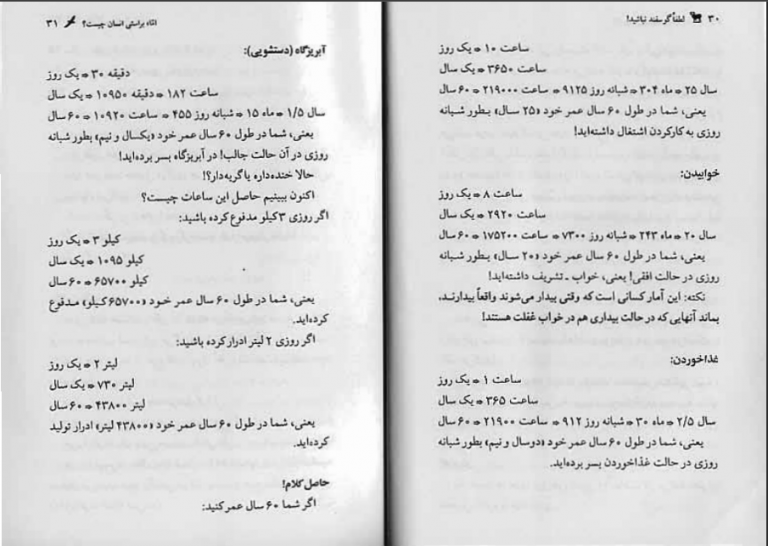 ۳۰ لطفاً گوسفند نباشید!
ساعت ۱۰ = یک روز
ساعت ۳۶۵۰ = یک سال
سال ۲۵ = ماه ۳۰۴ = شبانه روز ۹۱۲۵ = ساعت ۲۱۹۰۰۰ = ۶۰ سال
یعنی، شما در طول ۶۰ سال عمر خود «۲۵ سال» بطور شبانه
روزی به کارکردن اشتغال داشته‌اید!
خوابیدن:
ساعت ۸ = یک روز
ساعت ۲۹۲۰ = یک سال
سال ۲۰ = ماه ۲۴۳ = شبانه روز ۷۳۰۰ = ساعت ۱۷۵۲۰۰ = ۶۰ سال
یعنی، شما در طول ۶۰ سال عمر خود «۲۰ سال» بطور شبانه
روزی در حالت افقی! یعنی، خواب ـ تشریف داشته‌اید!
نکته: این آمار کسانی است که وقتی بیدار می‌شوند واقعاً بیدارند،
بماند آنهایی که در حالت بیداری هم در خواب غفلت هستند!
غذاخوردن:
ساعت ۱ = یک روز
ساعت ۳۶۵ = یک سال
سال ۲/۵ = ماه ۳۰ = شبانه روز ۹۱۲ = ساعت ۲۱۹۰۰ = ۶۰ سال
یعنی، شما در طول ۶۰ سال عمر خود «دوسال و نیم» بطور شبانه
روزی در حالت غذاخوردن بسر برده‌اید.
امّاه براستی انسان چیست؟ ۳۱
آبریزگاه (دستشویی):
دقیقه ۳۰ = یک روز
ساعت ۱۸۲ = دقیقه ۱۰۹۵۰ = یک سال
سال ۱/۵ = ماه ۱۵ = شبانه روز ۴۵۵ = ساعت ۱۰۹۲۰ = ۶۰ سال
یعنی، شما در طول ۶۰ سال عمر خود «یکسال و نیم» بطور شبانه
روزی در آن حالت جالب! در آبریزگاه بسر برده‌اید!
حالا خنده‌داره یا گریه‌دار؟!
اکنون ببینیم حاصل این ساعات چیست؟
اگر روزی ۳ کیلو مدفوع کرده باشید:
کیلو ۳ = یک روز
کیلو ۱۰۹۵ = یک سال
کیلو ۶۵۷۰۰ = ۶۰ سال
یعنی، شما در طول ۶۰ سال عمر خود «۶۵۷۰۰ کیلو» مدفوع
کرده‌اید.
اگر روزی ۲ لیتر ادرار کرده باشید:
لیتر ۲ = یک روز
لیتر ۷۳۰ = یک سال
لیتر ۴۳۸۰۰ = ۶۰ سال
یعنی، شما در طول ۶۰ سال عمر خود «۴۳۸۰۰ لیتر» ادرار تولید
کرده‌اید.
حاصل کلام!
اگر شما ۶۰ سال عمر کنید: